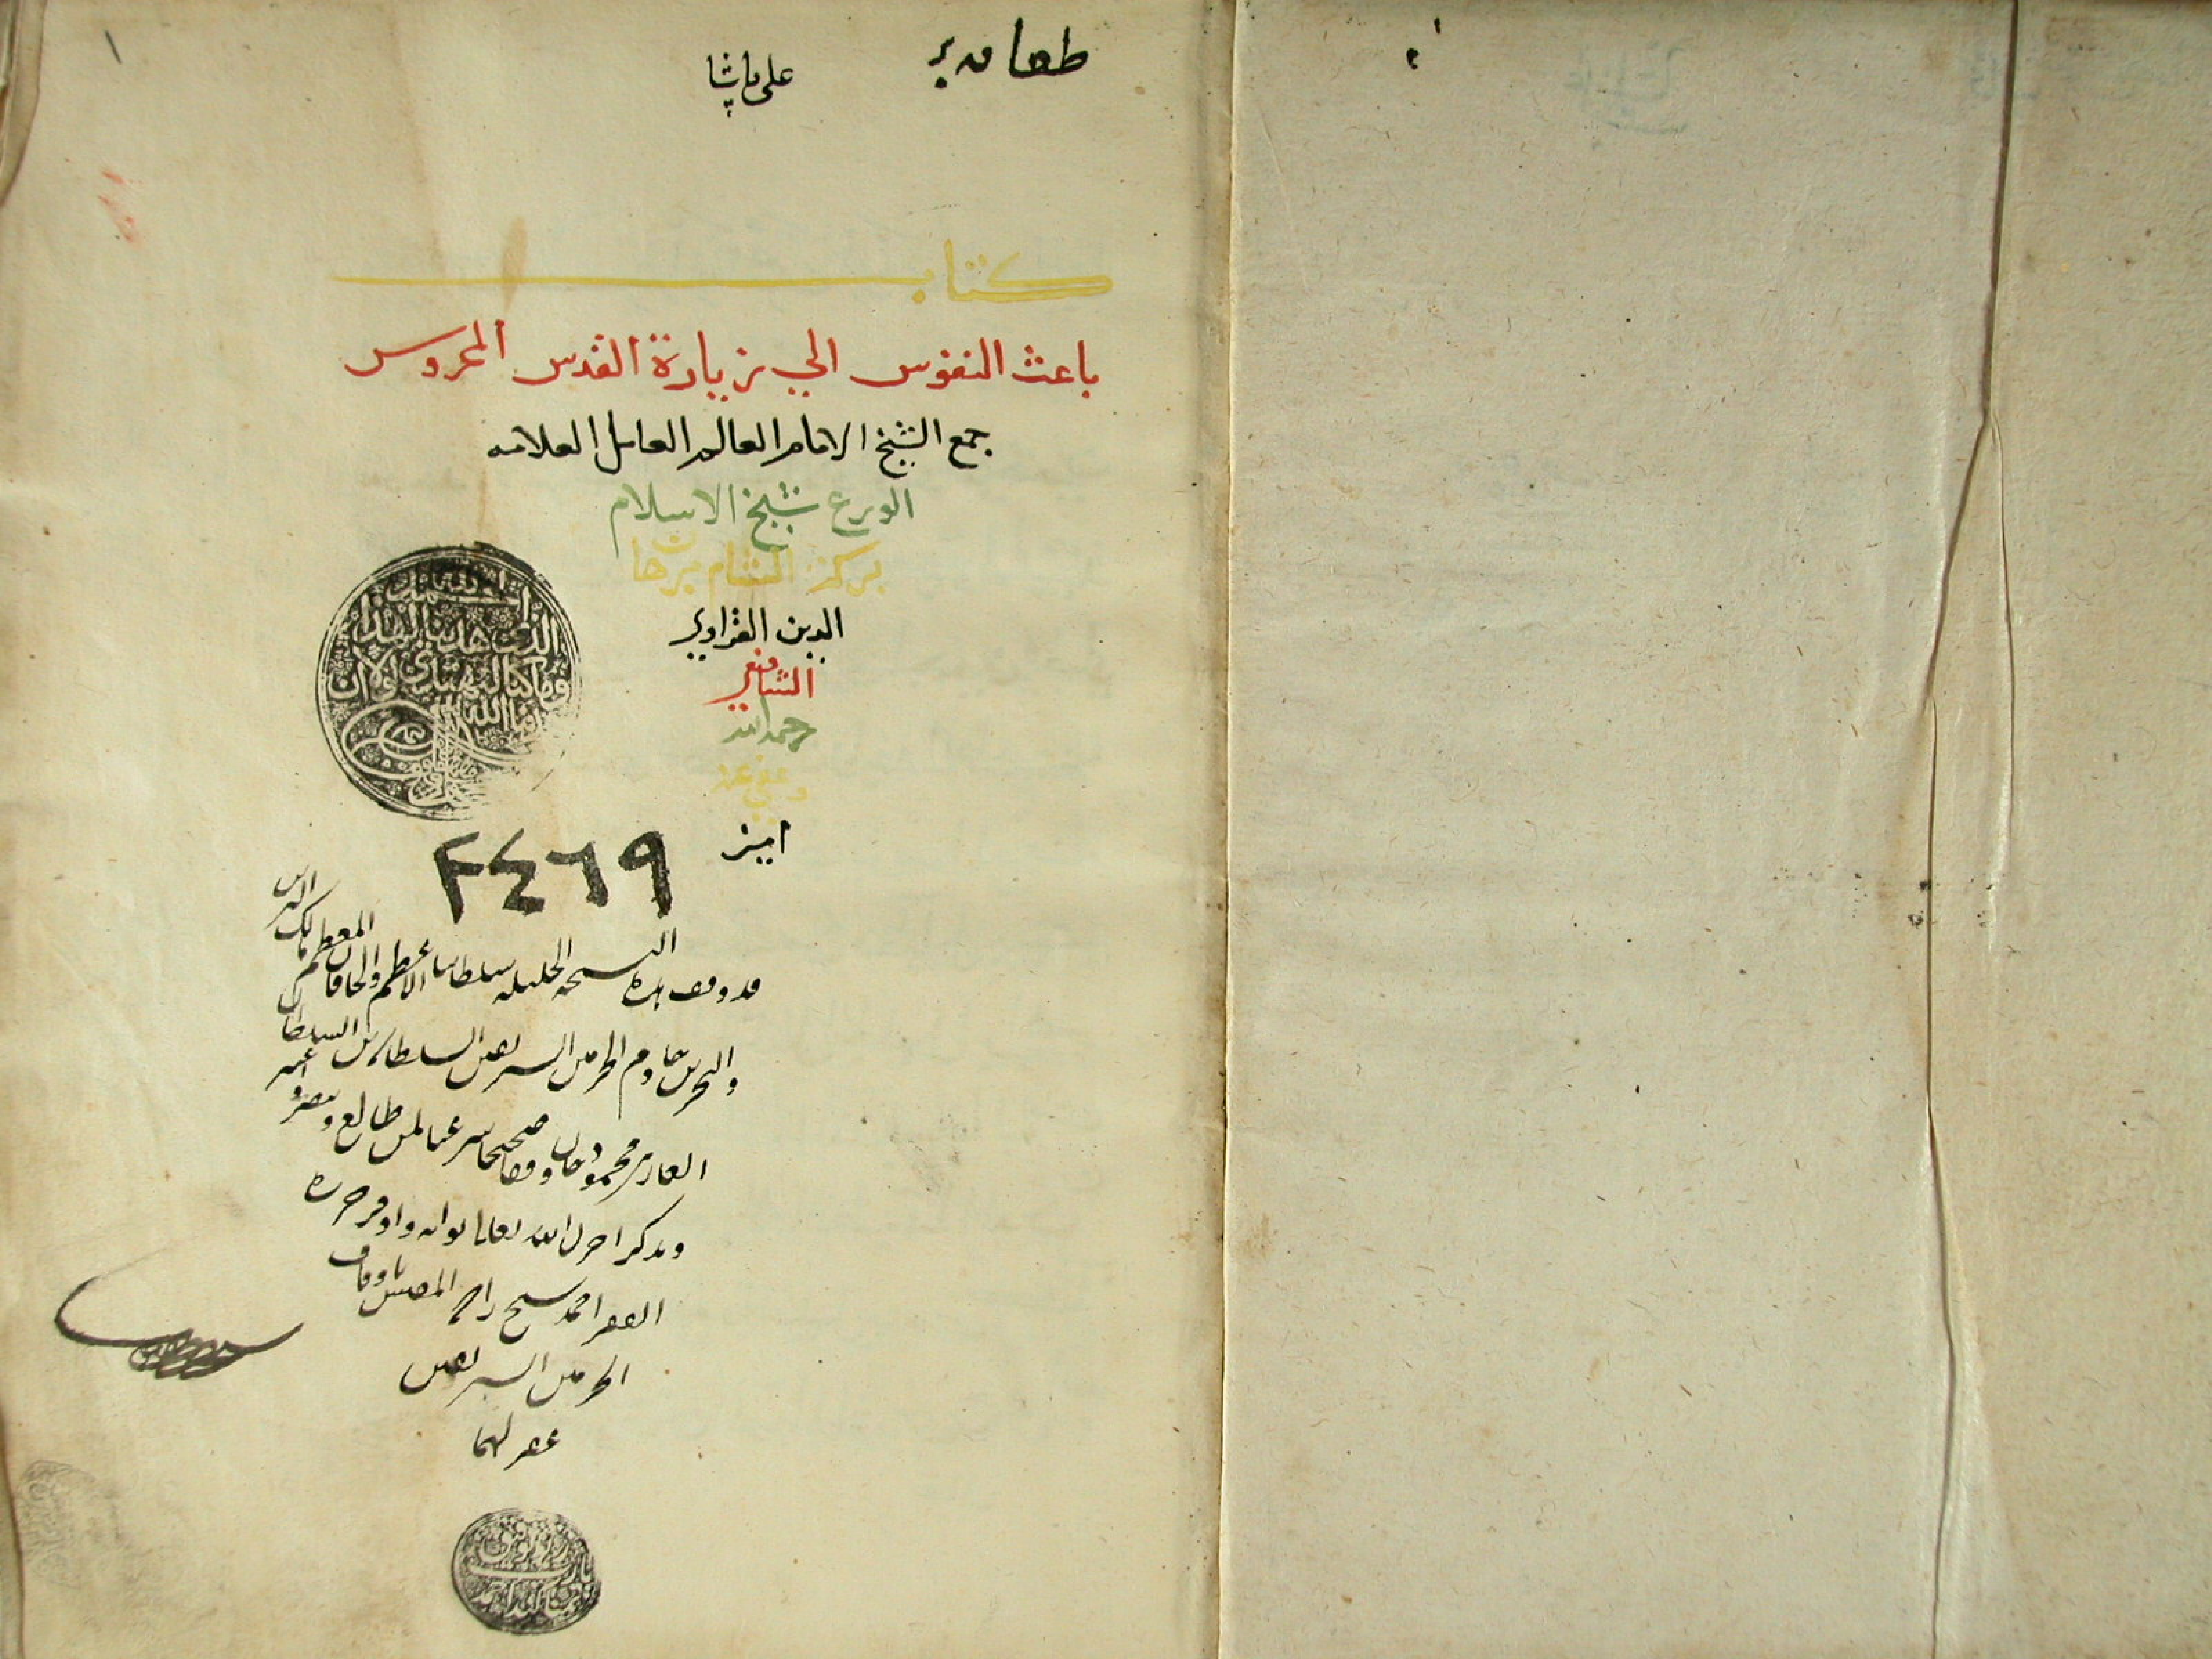 ١
علي پاشا
كتاب
باعث النفوس الي زيارة القدس المحروس
جمع الشيخ الامام العالم العامل العلامه
الورع شيخ الاسلام
بركة الشام برهان
الدين الفزاوي
الشافعي
رحمه الله
وعفي عنه
امين
الحمد لله
الذي هدانا لهذا
وما كنا لنهتدي لولا ان
هدانا الله
٢٤٦٩
قد وقف هذه النسخه الجليله سلطاننا الاعظم والخاقان المعظم مالك البرين
والبحرين خادم الحرمين الشريفين السلطان بن السلطان
الغازي محمود خان وقفا صحيحا شرعيا لمن طالع وتبصر واعتبر
وتذكر اجزل الله تعالى ثوابه واوفر
الفقير احمد شيخ زاده المفتش باوقاف
الحرمين الشريفين
غفر لهما